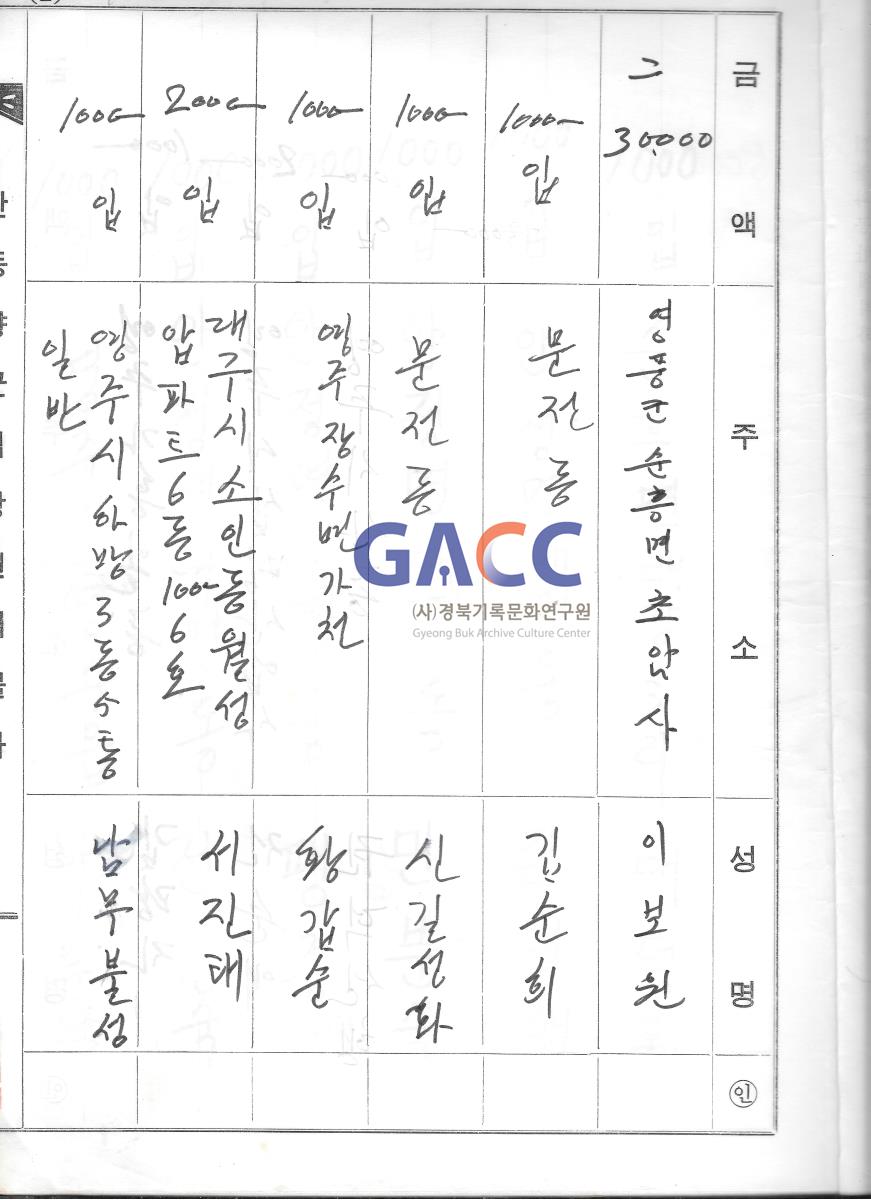 금액
주소
성명
인
그
30,000
영풍군 순흥면 초암사
이보원
1000
입
문전동
김순희
1000
입
문전동
신길성화
1000
입
영주장수면가천
황갑순
2000
입
대구시 소인동 월성
압파트 6동 100
6호
서진태
1000
입
영주시 하망3동 수통
일반
남무불성
GACC
(사)경북기록문화연구원
Gyeong Buk Archive Culture Center